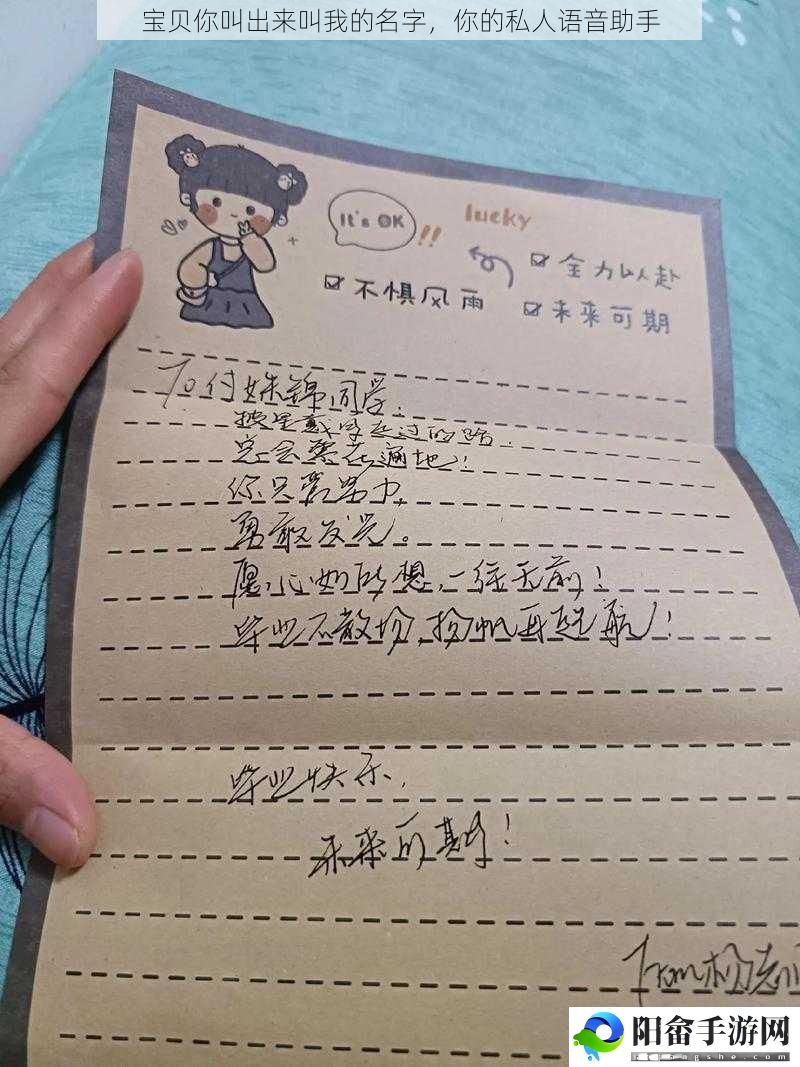 宝贝你叫出来叫我的名字，你的私人语音助手
It's OK !!
lucky
全力以赴
不惧风雨
未来可期
To付姝锦同学：
披星戴月走过的路，
总会繁花遍地！
你只管努力，
勇敢发光。
愿心如所想，一往无前！
毕业不散场，扬帆再起航！
毕业快乐，
未来可期！
From杨老师
阳畲手游网